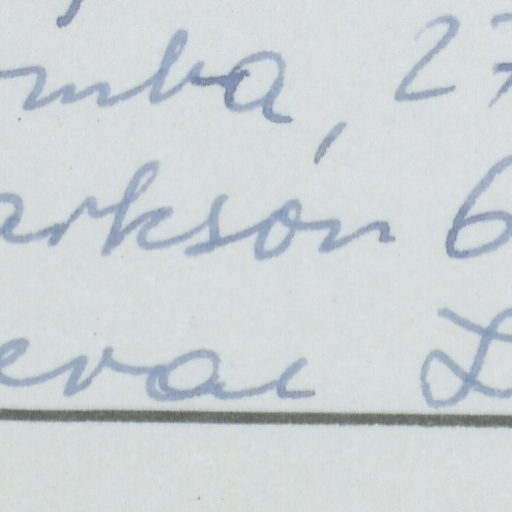 omba, 27
arkson 6
evai L